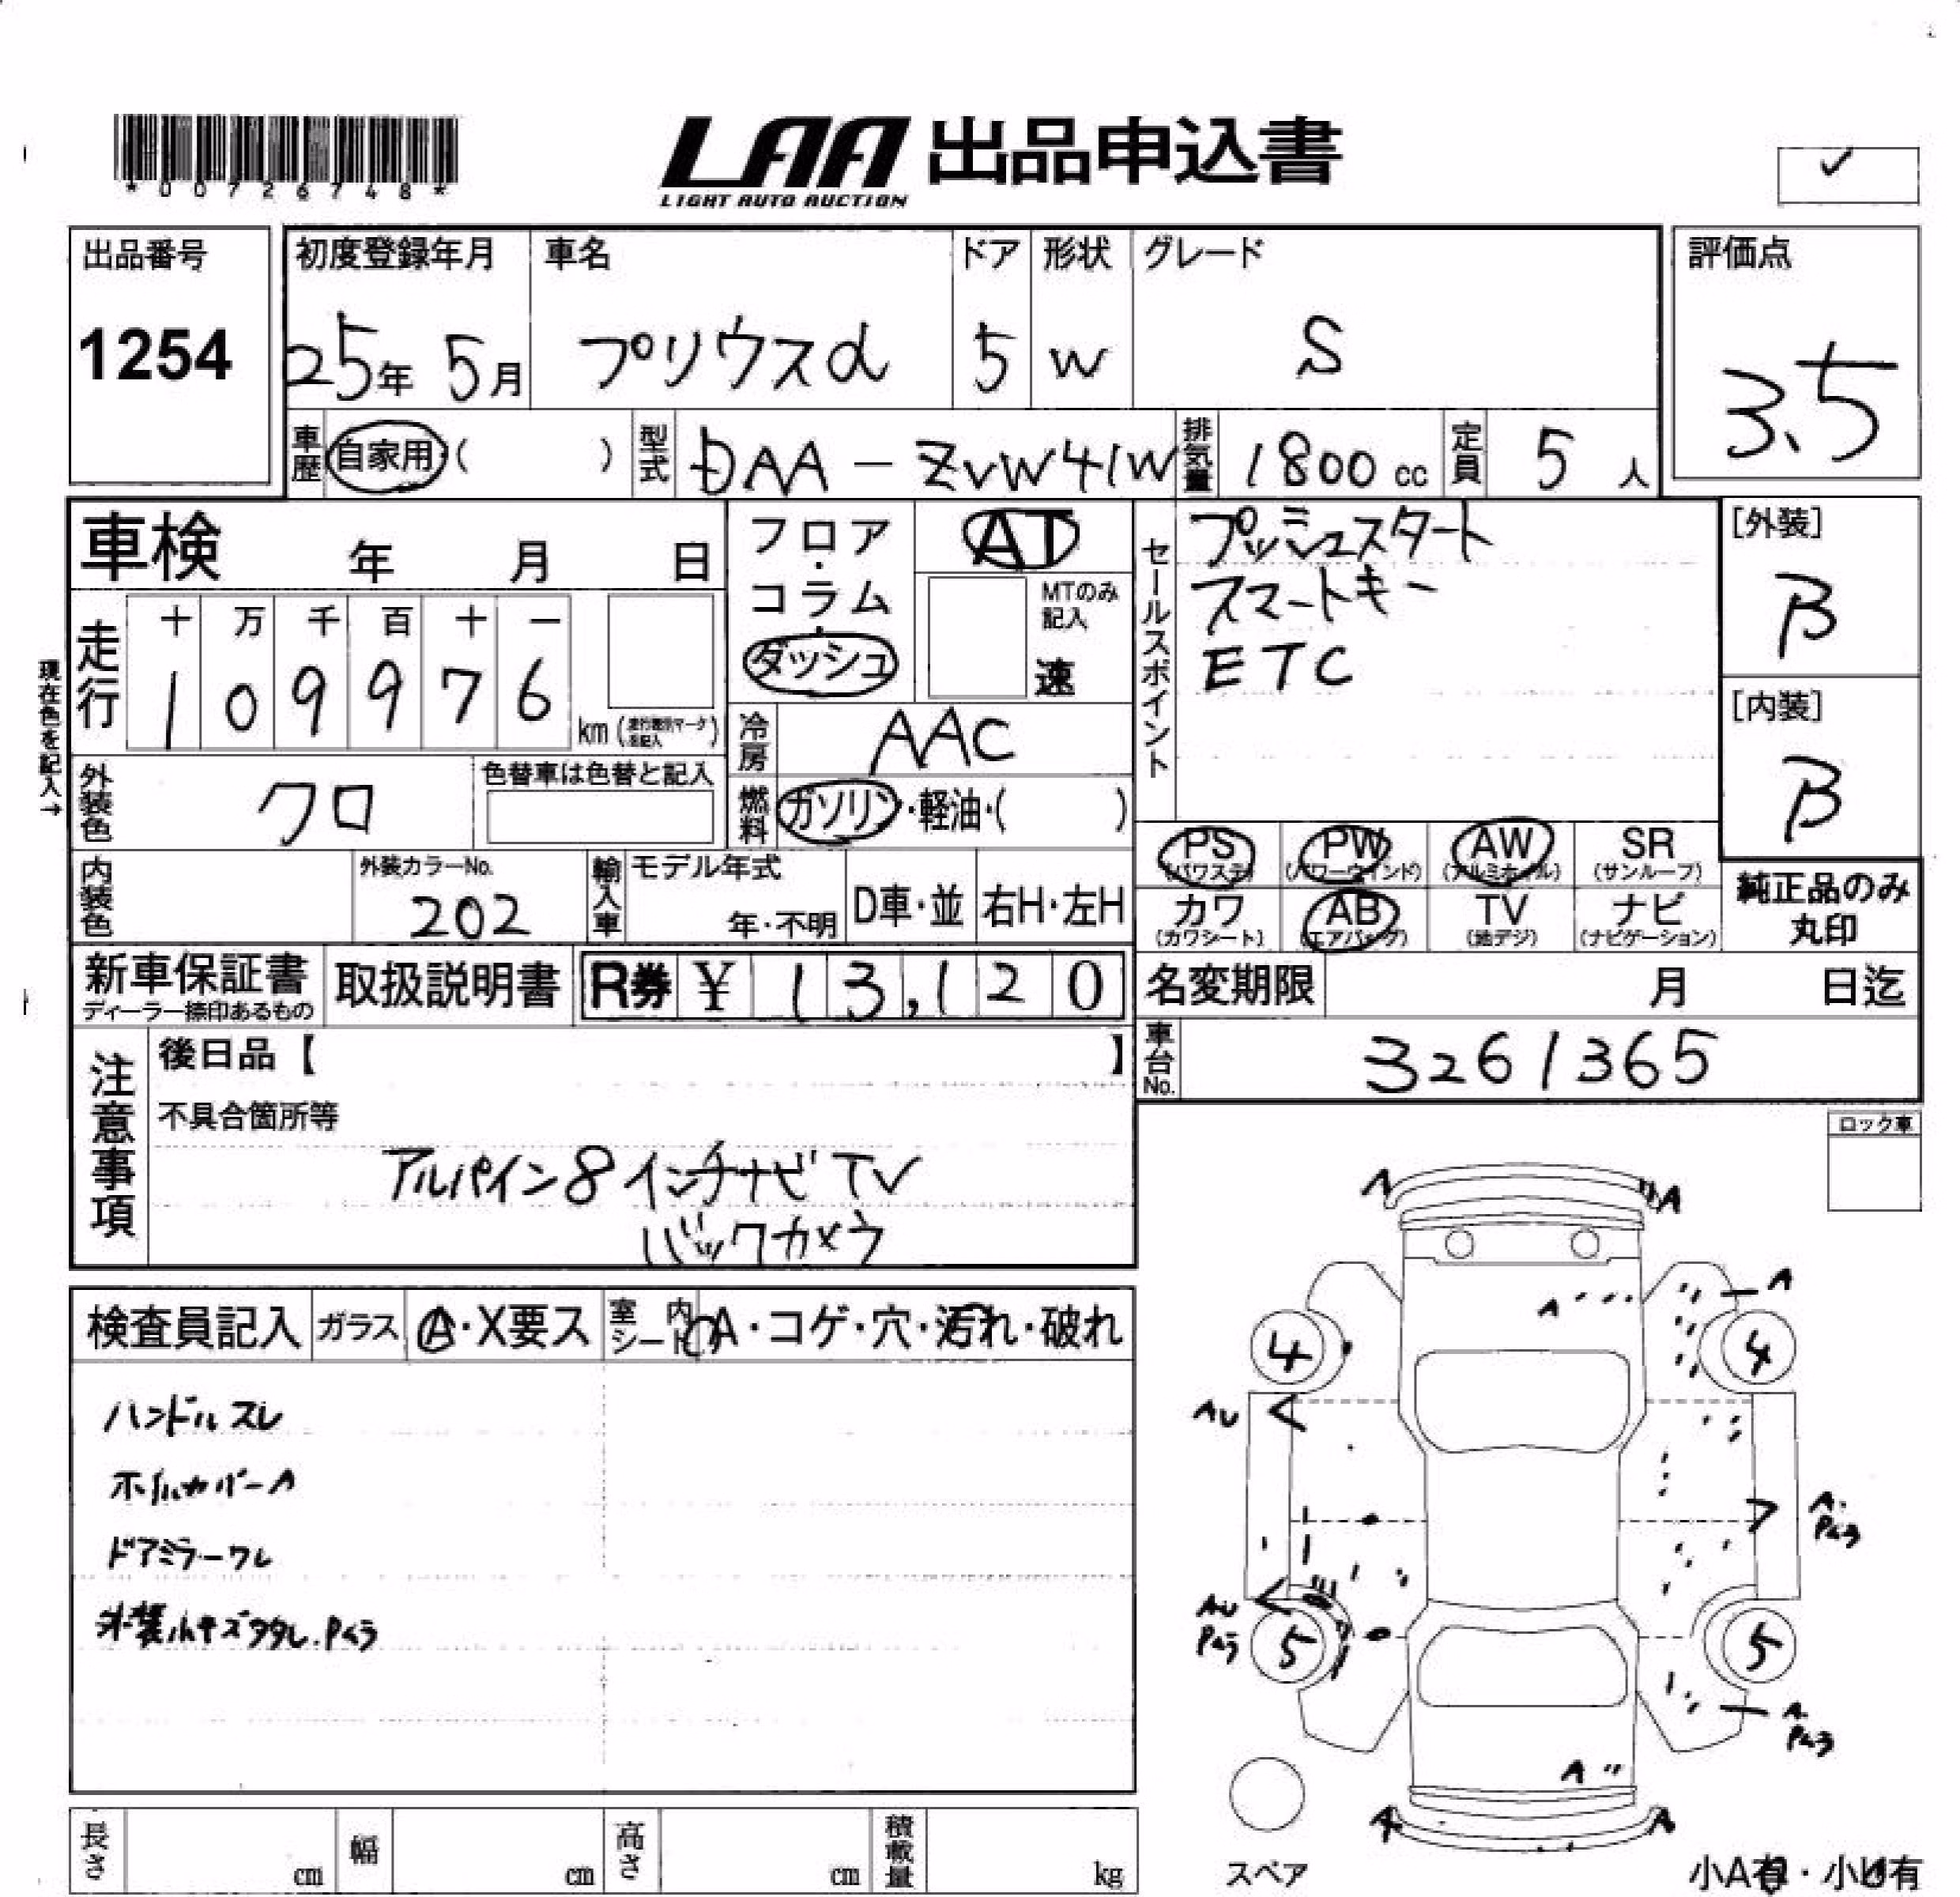 *00726748*
LAA 出品申込書
LIGHT AUTO AUCTION
✓
出品番号
1254
初度登録年月
25年 5月
車名
プリウスα
ドア
5
形状
W
グレード
S
評価点
3.5
車歴 自家用・( )
型式 DAA-ZVW41W
排気量 1800 cc
定員 5 人
車検 年 月 日
フロア・コラム・ダッシュ
AT
MTのみ記入
速
セールスポイント
プッシュスタート
スマートキー
ETC
[外装]
B
[内装]
B
現在色を記入→
走行
十 万 千 百 十 一
1 0 9 9 7 6
km
冷房 AAC
外装色 クロ
色替車は色替と記入
燃料 ガソリン・軽油・( )
PS (パワステ)
PW (パワーウインド)
AW (アルミホイル)
SR (サンルーフ)
カワ (カワシート)
AB (エアバッグ)
TV (地デジ)
ナビ (ナビゲーション)
純正品のみ
丸印
内装色
外装カラーNo.
202
輸入車
モデル年式
年・不明
D車・並
右H・左H
新車保証書
ディーラー捺印あるもの
取扱説明書
R券 ¥ 13,120
名変期限 月 日迄
車台No. 3261365
注意事項
後日品【 】
不具合箇所等
アルパイン8インチナビTV
バックカメラ
ロック車
検査員記入
ガラス A・X要ス
室内シート A・コゲ・穴・汚れ・破れ
ハンドルスレ
ホイルカバーA
ドアミラーワレ
外装小キズ多数し.Pムラ
A
A
A
A
4
4
AU
A.
Pムラ
AU
Pムラ
5
5
A.
Pムラ
A
A
A
スペア
小A有・小U有
長さ cm
幅 cm
高さ cm
積載量 kg